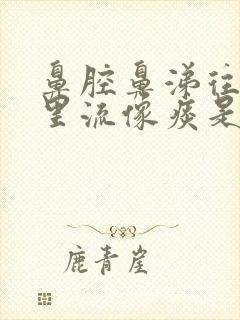 鼻腔鼻涕往
里流像痰是
鹿青崖